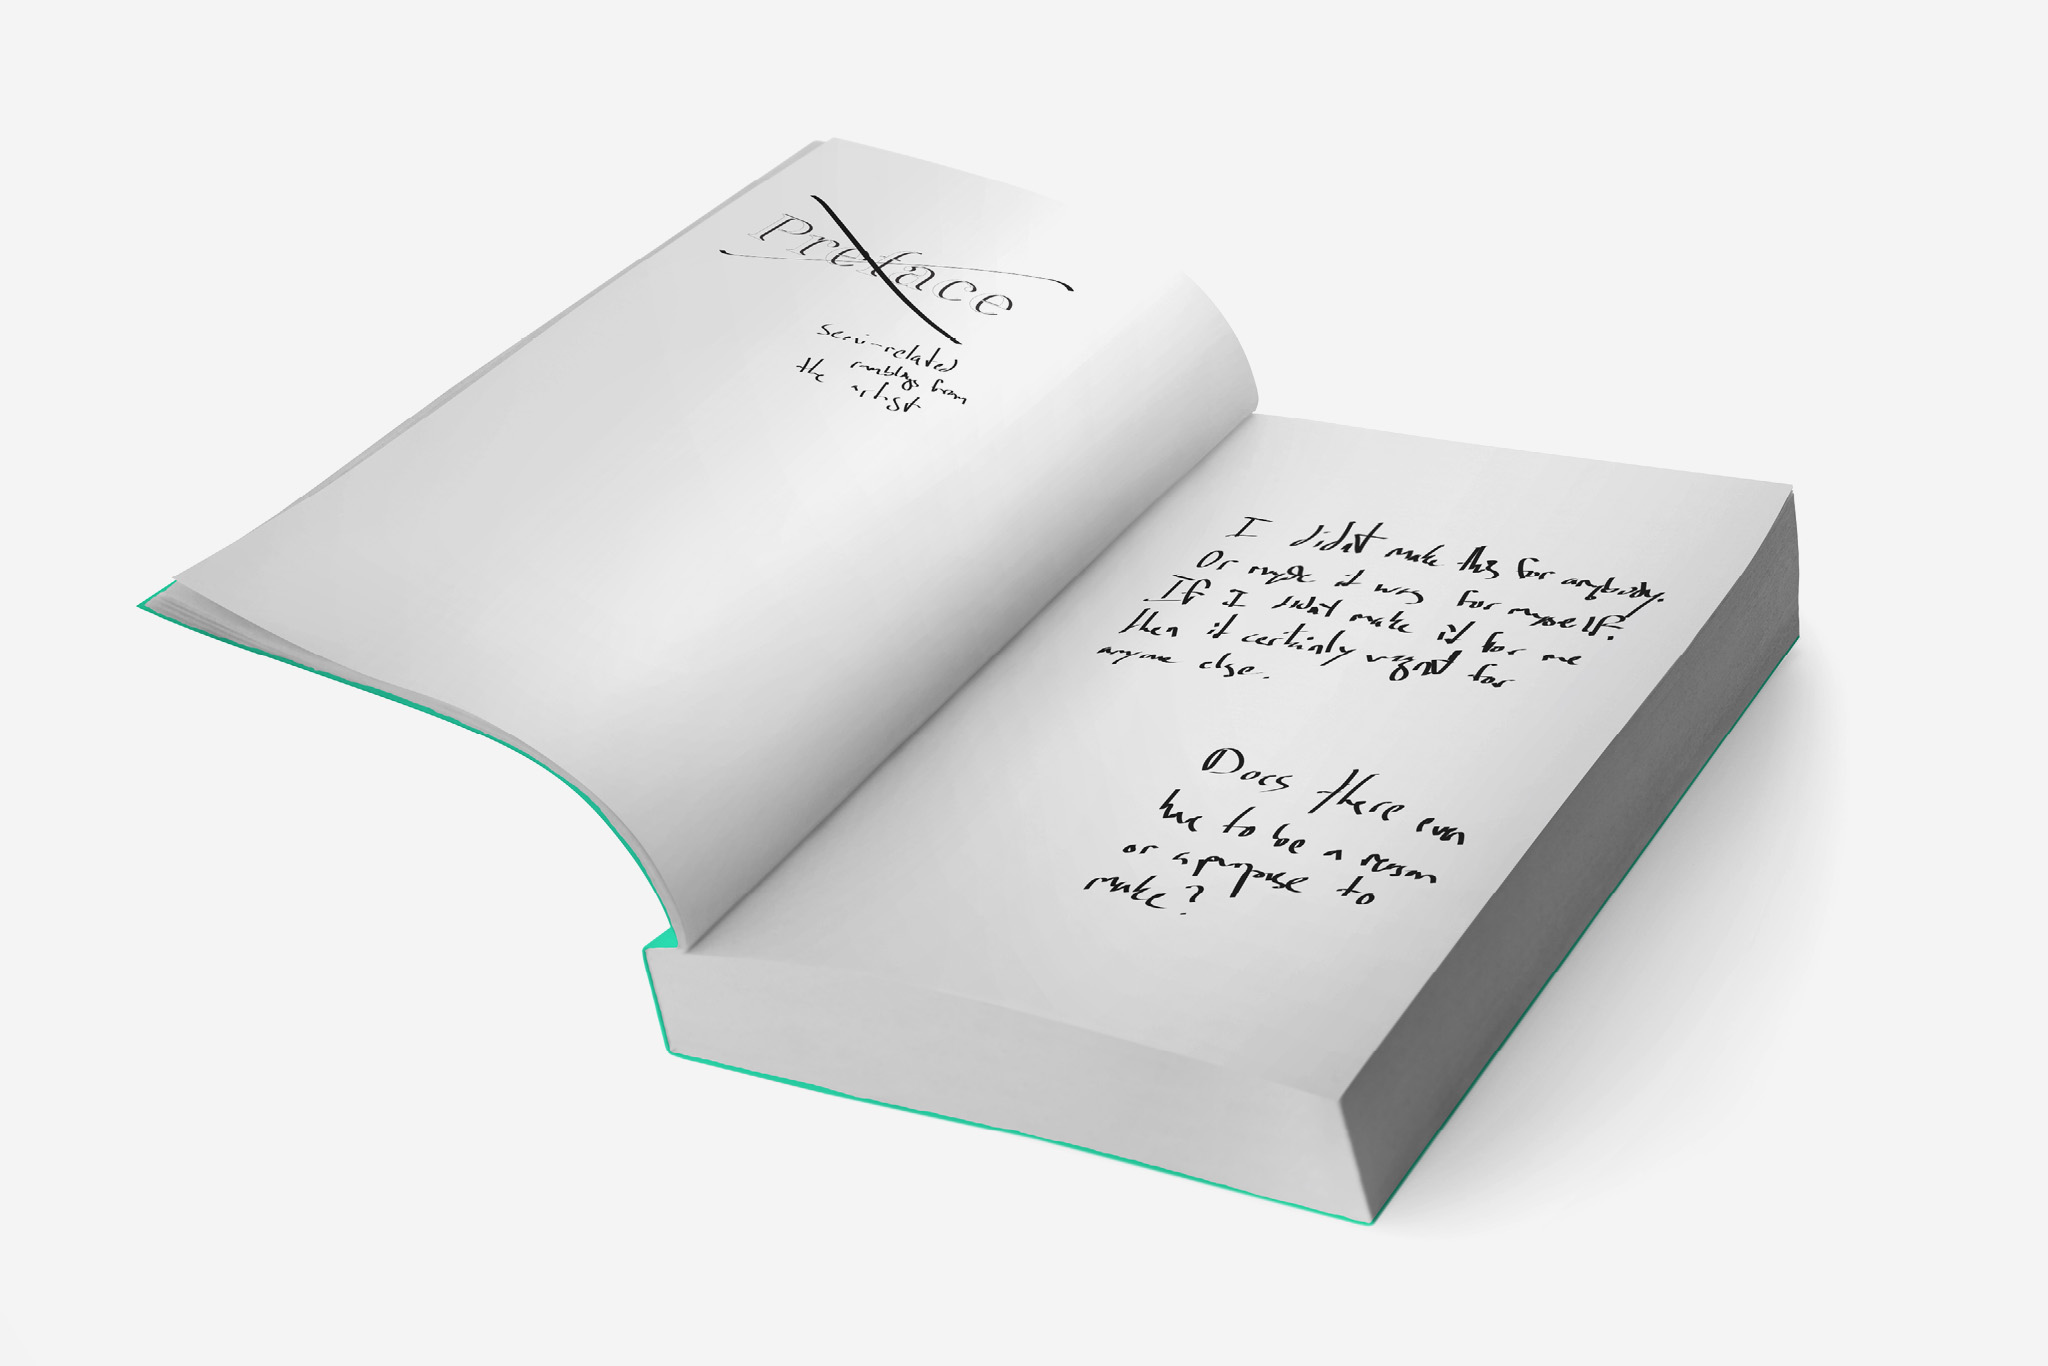 Preface
semi-related
ramblings from
the artist
I didn't make this for anybody.
Or maybe it was for myself.
If I didn't make it for me
then it certainly wasn't for
anyone else.
Does there even
have to be a reason
or a purpose to
make?